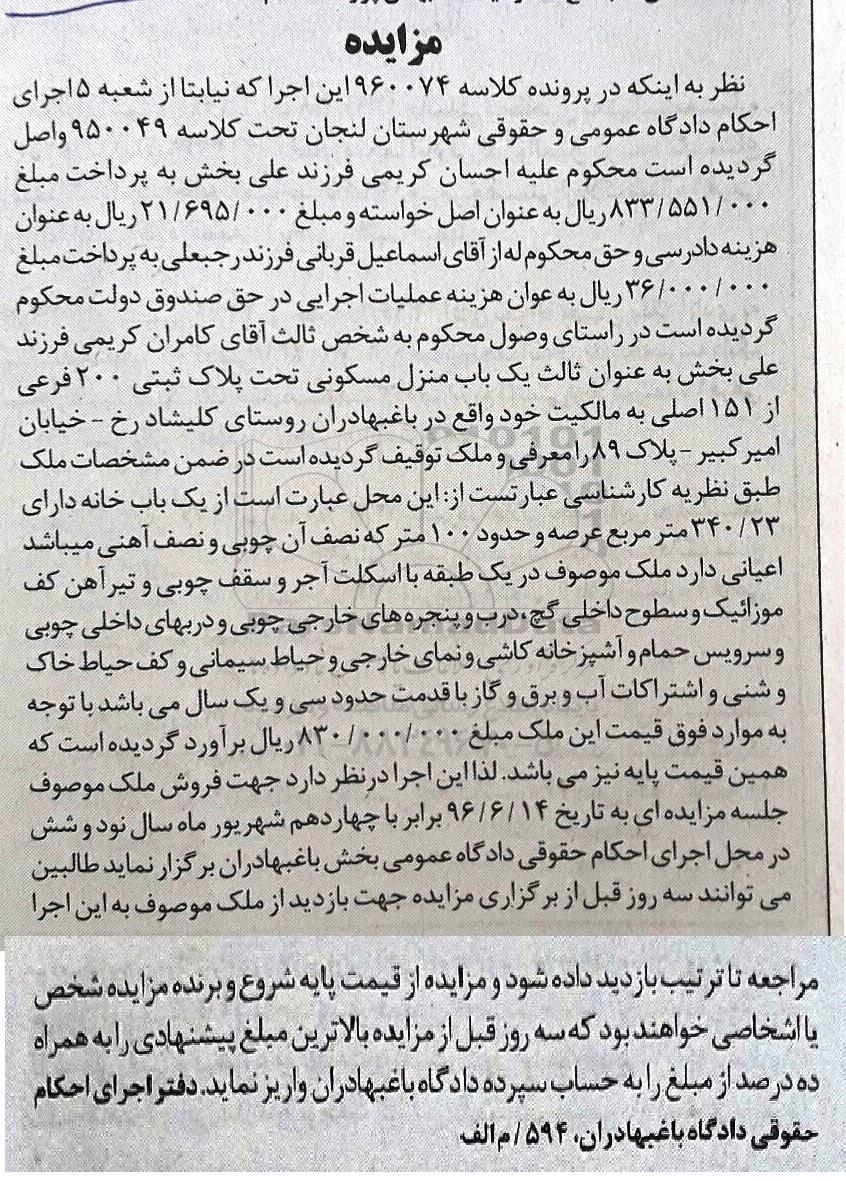 مزایده
نظر به اینکه در پرونده کلاسه ۹۶۰۰۷۴ این اجرا که نیابتا از شعبه ۵ اجرای
احکام دادگاه عمومی و حقوقی شهرستان لنجان تحت کلاسه ۹۵۰۰۴۹ واصل
گردیده است محکوم علیه احسان کریمی فرزند علی بخش به پرداخت مبلغ
۸۳۳/۵۵۱/۰۰۰ ریال به عنوان اصل خواسته و مبلغ ۲۱/۶۹۵/۰۰۰ ریال به عنوان
هزینه دادرسی و حق محکوم له از آقای اسماعیل قربانی فرزند رجبعلی به پرداخت مبلغ
۳۶/۰۰۰/۰۰۰ ریال به عوان هزینه عملیات اجرایی در حق صندوق دولت محکوم
گردیده است در راستای وصول محکوم به شخص ثالث آقای کامران کریمی فرزند
علی بخش به عنوان ثالث یک باب منزل مسکونی تحت پلاک ثبتی ۲۰۰ فرعی
از ۱۵۱ اصلی به مالکیت خود واقع در باغبهادران روستای کلیشاد رخ - خیابان
امیرکبیر - پلاک ۸۹ را معرفی و ملک توقیف گردیده است در ضمن مشخصات ملک
طبق نظریه کارشناسی عبارتست از: این محل عبارت است از یک باب خانه دارای
۳۴۰/۲۳ متر مربع عرصه و حدود ۱۰۰ متر که نصف آن چوبی و نصف آهنی میباشد
اعیانی دارد ملک موصوف در یک طبقه با اسکلت آجر و سقف چوبی و تیرآهن کف
موزائیک و سطوح داخلی گچ، درب و پنجره های خارجی چوبی و دربهای داخلی چوبی
و سرویس حمام و آشپزخانه کاشی و نمای خارجی و حیاط سیمانی و کف حیاط خاک
و شنی و اشتراکات آب و برق و گاز با قدمت حدود سی و یک سال می باشد با توجه
به موارد فوق قیمت این ملک مبلغ ۸۳۰/۰۰۰/۰۰۰ ریال برآورد گردیده است که
همین قیمت پایه نیز می باشد. لذا این اجرا درنظر دارد جهت فروش ملک موصوف
جلسه مزایده ای به تاریخ ۹۶/۶/۱۴ برابر با چهاردهم شهریور ماه سال نود و شش
در محل اجرای احکام حقوقی دادگاه عمومی بخش باغبهادران برگزار نماید طالبین
می توانند سه روز قبل از برگزاری مزایده جهت بازدید از ملک موصوف به این اجرا
مراجعه تا ترتیب بازدید داده شود و مزایده از قیمت پایه شروع و برنده مزایده شخص
یا اشخاصی خواهند بود که سه روز قبل از مزایده بالاترین مبلغ پیشنهادی را به همراه
ده درصد از مبلغ را به حساب سپرده دادگاه باغبهادران واریز نماید. دفتر اجرای احکام
حقوقی دادگاه باغبهادران، ۵۹۴/م الف